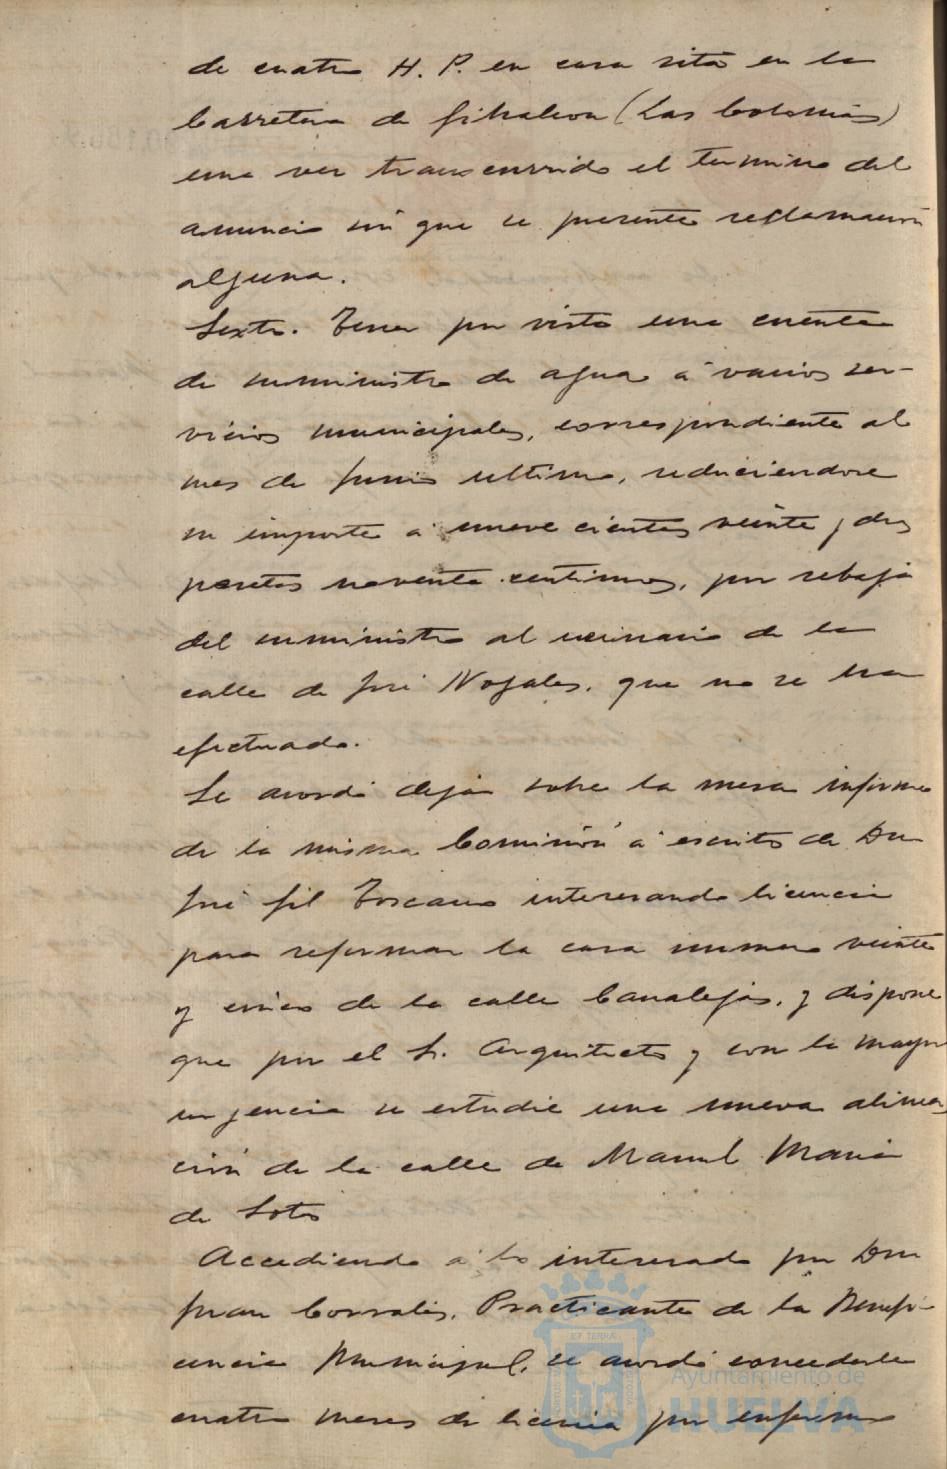 de cuatro H. P. en casa sita en la
Carretera de Gibraleon (Las Colonias)
una vez transcurrido el termino del
anuncio sin que se presente reclamación
alguna.
Sexto. Tener por visto una cuenta
de suministro de agua á varios ser-
vicios municipales, correspondiente al
mes de Junio ultimo, reduciendose
su importe á nueve cientas veinte y dos
pesetas noventa centimos, por rebaja
del suministro al urinario de la
calle de José Nogales, que no se ha
efectuado.
Se acordó dejar sobre la mesa informe
de la misma Comisión á escrito de Don
José Gil Toscano interesando licencia
para reformar la casa numero veinte
y cinco de la calle Canalejas, y dispone
que por el Sr. Arquitecto y con la mayor
urgencia se estudie una nueva alinea-
ción de la calle de Manuel Maria
de Soto
Accediendo á lo interesado por Don
Juan Corrales, Practicante de la Benefi-
cencia Municipal, se acordó concederle
cuatro meses de licencia por enfermo
Ayuntamiento de
HUELVA